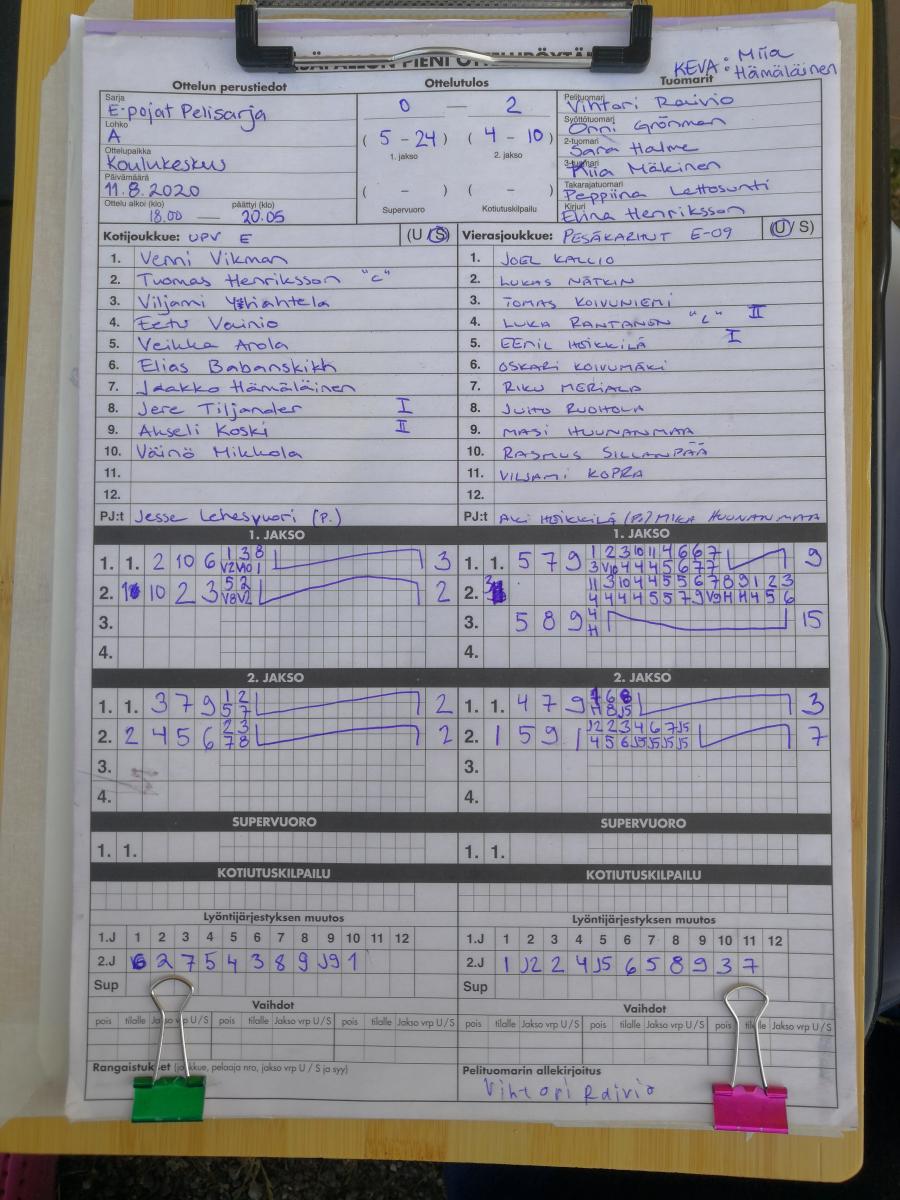 KEVA: Miia Hämäläinen
Ottelun perustiedot
Ottelutulos
Tuomarit
Sarja
E-pojat Pelisarja
Lohko
A
Ottelupaikka
Koulukeskus
Päivämäärä
11.8.2020
Ottelu alkoi (klo) päättyi (klo)
18.00 — 20.05
0 — 2
( 5 - 24 ) ( 4 - 10 )
1. jakso 2. jakso
( - ) ( - )
Supervuoro Kotiutuskilpailu
Pelituomari
Vihtori Raivio
Syöttötuomari
Onni Grönman
2-tuomari
Sara Halme
3-tuomari
Kiia Mäkinen
Takarajatuomari
Peppiina Lattosunti
Kirjuri
Elina Henriksson
Kotijoukkue: UPV E (U / S)
1. Venni Vikman
2. Tuomas Henriksson "C"
3. Viljami
4. Eetu Vainio
5. Veikka Arola
6. Elias Babanskikh
7. Jaakko Hämäläinen
8. Jere Tiljander I
9. Akseli Koski II
10. Väinö Mikkola
11.
12.
PJ:t Jesse Lehesvuori (P.)
Vierasjoukkue: PESÄKARHUT E-09 (U / S)
1. JOEL KALLIO
2. LUKAS NÄTKIN
3. TOMAS KOIVUNIEMI
4. LUKA RANTANEN "C" II
5. EEMIL HEIKKILÄ I
6. OSKARI KOIVUMÄKI
7. RIKU MERIALA
8. JUHO RUOHOLA
9. MASI HUUNANMAA
10. RASMUS SILLANPÄÄ
11. VILJAMI KOPRA
12.
PJ:t AKI HEIKKILÄ (P.) MIKA HUUNANMAA
1. JAKSO
1. 1. 2 10 6 1 3 8 3
V2 V10 1
2. 10 2 3 5 2 2
V8 V2
3.
4.
1. JAKSO
1. 1. 5 7 9 1 2 3 10 11 4 6 6 7 9
3 V10 4 4 4 5 6 7 7
2. 11 3 10 4 4 5 5 6 7 8 9 1 2 3
4 4 4 4 5 5 7 9 V9 H H 4 5 6
3. 5 8 9 4 15
H
4.
2. JAKSO
1. 1. 3 7 9 1 2 2
5 7
2. 2 4 5 6 2 3 2
7 8
3.
4.
2. JAKSO
1. 1. 4 7 9 1 6 8 3
H 8 J5
2. 1 5 9 1 J2 2 3 4 6 7 J5 7
4 5 6 J5 J5 J5 J5
3.
4.
SUPERVUORO
1. 1.
SUPERVUORO
1. 1.
KOTIUTUSKILPAILU
KOTIUTUSKILPAILU
Lyöntijärjestyksen muutos
1.J 1 2 3 4 5 6 7 8 9 10 11 12
2.J 6 2 7 5 4 3 8 9 J9 1
Sup
Lyöntijärjestyksen muutos
1.J 1 2 3 4 5 6 7 8 9 10 11 12
2.J 1 J2 2 4 J5 6 5 8 9 3 7
Sup
Vaihdot
pois tilalle Jakso vrp U / S pois tilalle Jakso vrp U / S pois tilalle Jakso vrp U / S
Vaihdot
pois tilalle Jakso vrp U / S pois tilalle Jakso vrp U / S pois tilalle Jakso vrp U / S
Rangaistukset (joukkue, pelaaja nro, jakso vrp U / S ja syy)
Pelituomarin allekirjoitus
Vihtori Raivio